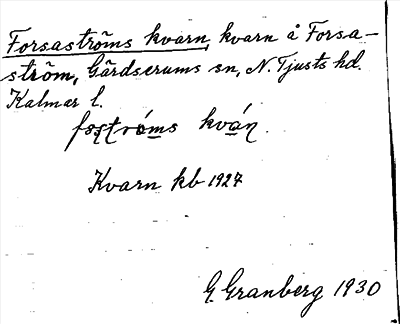 Forsaströms kvarn, kvarn å Forsa-
ström, Gärdserums sn, N. Tjusts hd.
Kalmar l.
kván.
Kvarn kb 1927
G. Granberg 1930